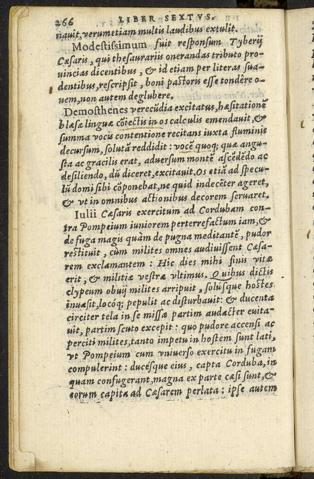 266 LIBER SEXTVS.
riauit, verumetiam multis laudibus extulit.
Modestissimum fuit responsum Tyberij
Cæsaris, qui thesaurariis onerandas tributo pro-
uincias dicentibus, & id etiam per literas sua-
dentibus, rescripsit, boni pastoris esse tondêre o-
uem, non autem deglubere.
Demosthenes verecũdia excitatus, hæsitationẽ
blæsæ linguæ cõiectis in os calculis emendauit, &
summa vocũ contentione recitans iuxta fluminis
decursum, solutã reddidit: vocẽ quoq; quæ angu-
sta ac gracilis erat, aduersum montẽ ascẽdẽdo ac
desiliendo, dũ diceret, excitauit. Os etiã ad specu-
lũ domi sibi cõponebat, ne quid indecẽter ageret,
& vt in omnibus actionibus decorem seruaret.
Iulii Cæsaris exercitum ad Cordubam con-
tra Pompeium iuniorem perterrefactum iam, &
de fuga magis quàm de pugna meditantẽ, pudor
restituit, cum milites omnes audiuissent Cæsa-
rem exclamantem: Hic dies mihi finis vitæ
erit, & militiæ vestræ vltimus. Quibus dictis
clypeum obuij milites arripuit, solúsque hostes
inuasit, locóq; pepulit ac disturbauit: & ducenta
circiter tela in se missa partim audacter euita-
uit, partim scuto excepit: quo pudore accensi ac
perciti milites, tanto impetu in hostem sunt lati,
vt Pompeium cum vniuerso exercitu in fugam
compulerint: ducésque eius, capta Corduba, in
quam confugerant, magna ex parte cæsi sunt, &
eorum capita ad Cæsarem perlata: ipse autem